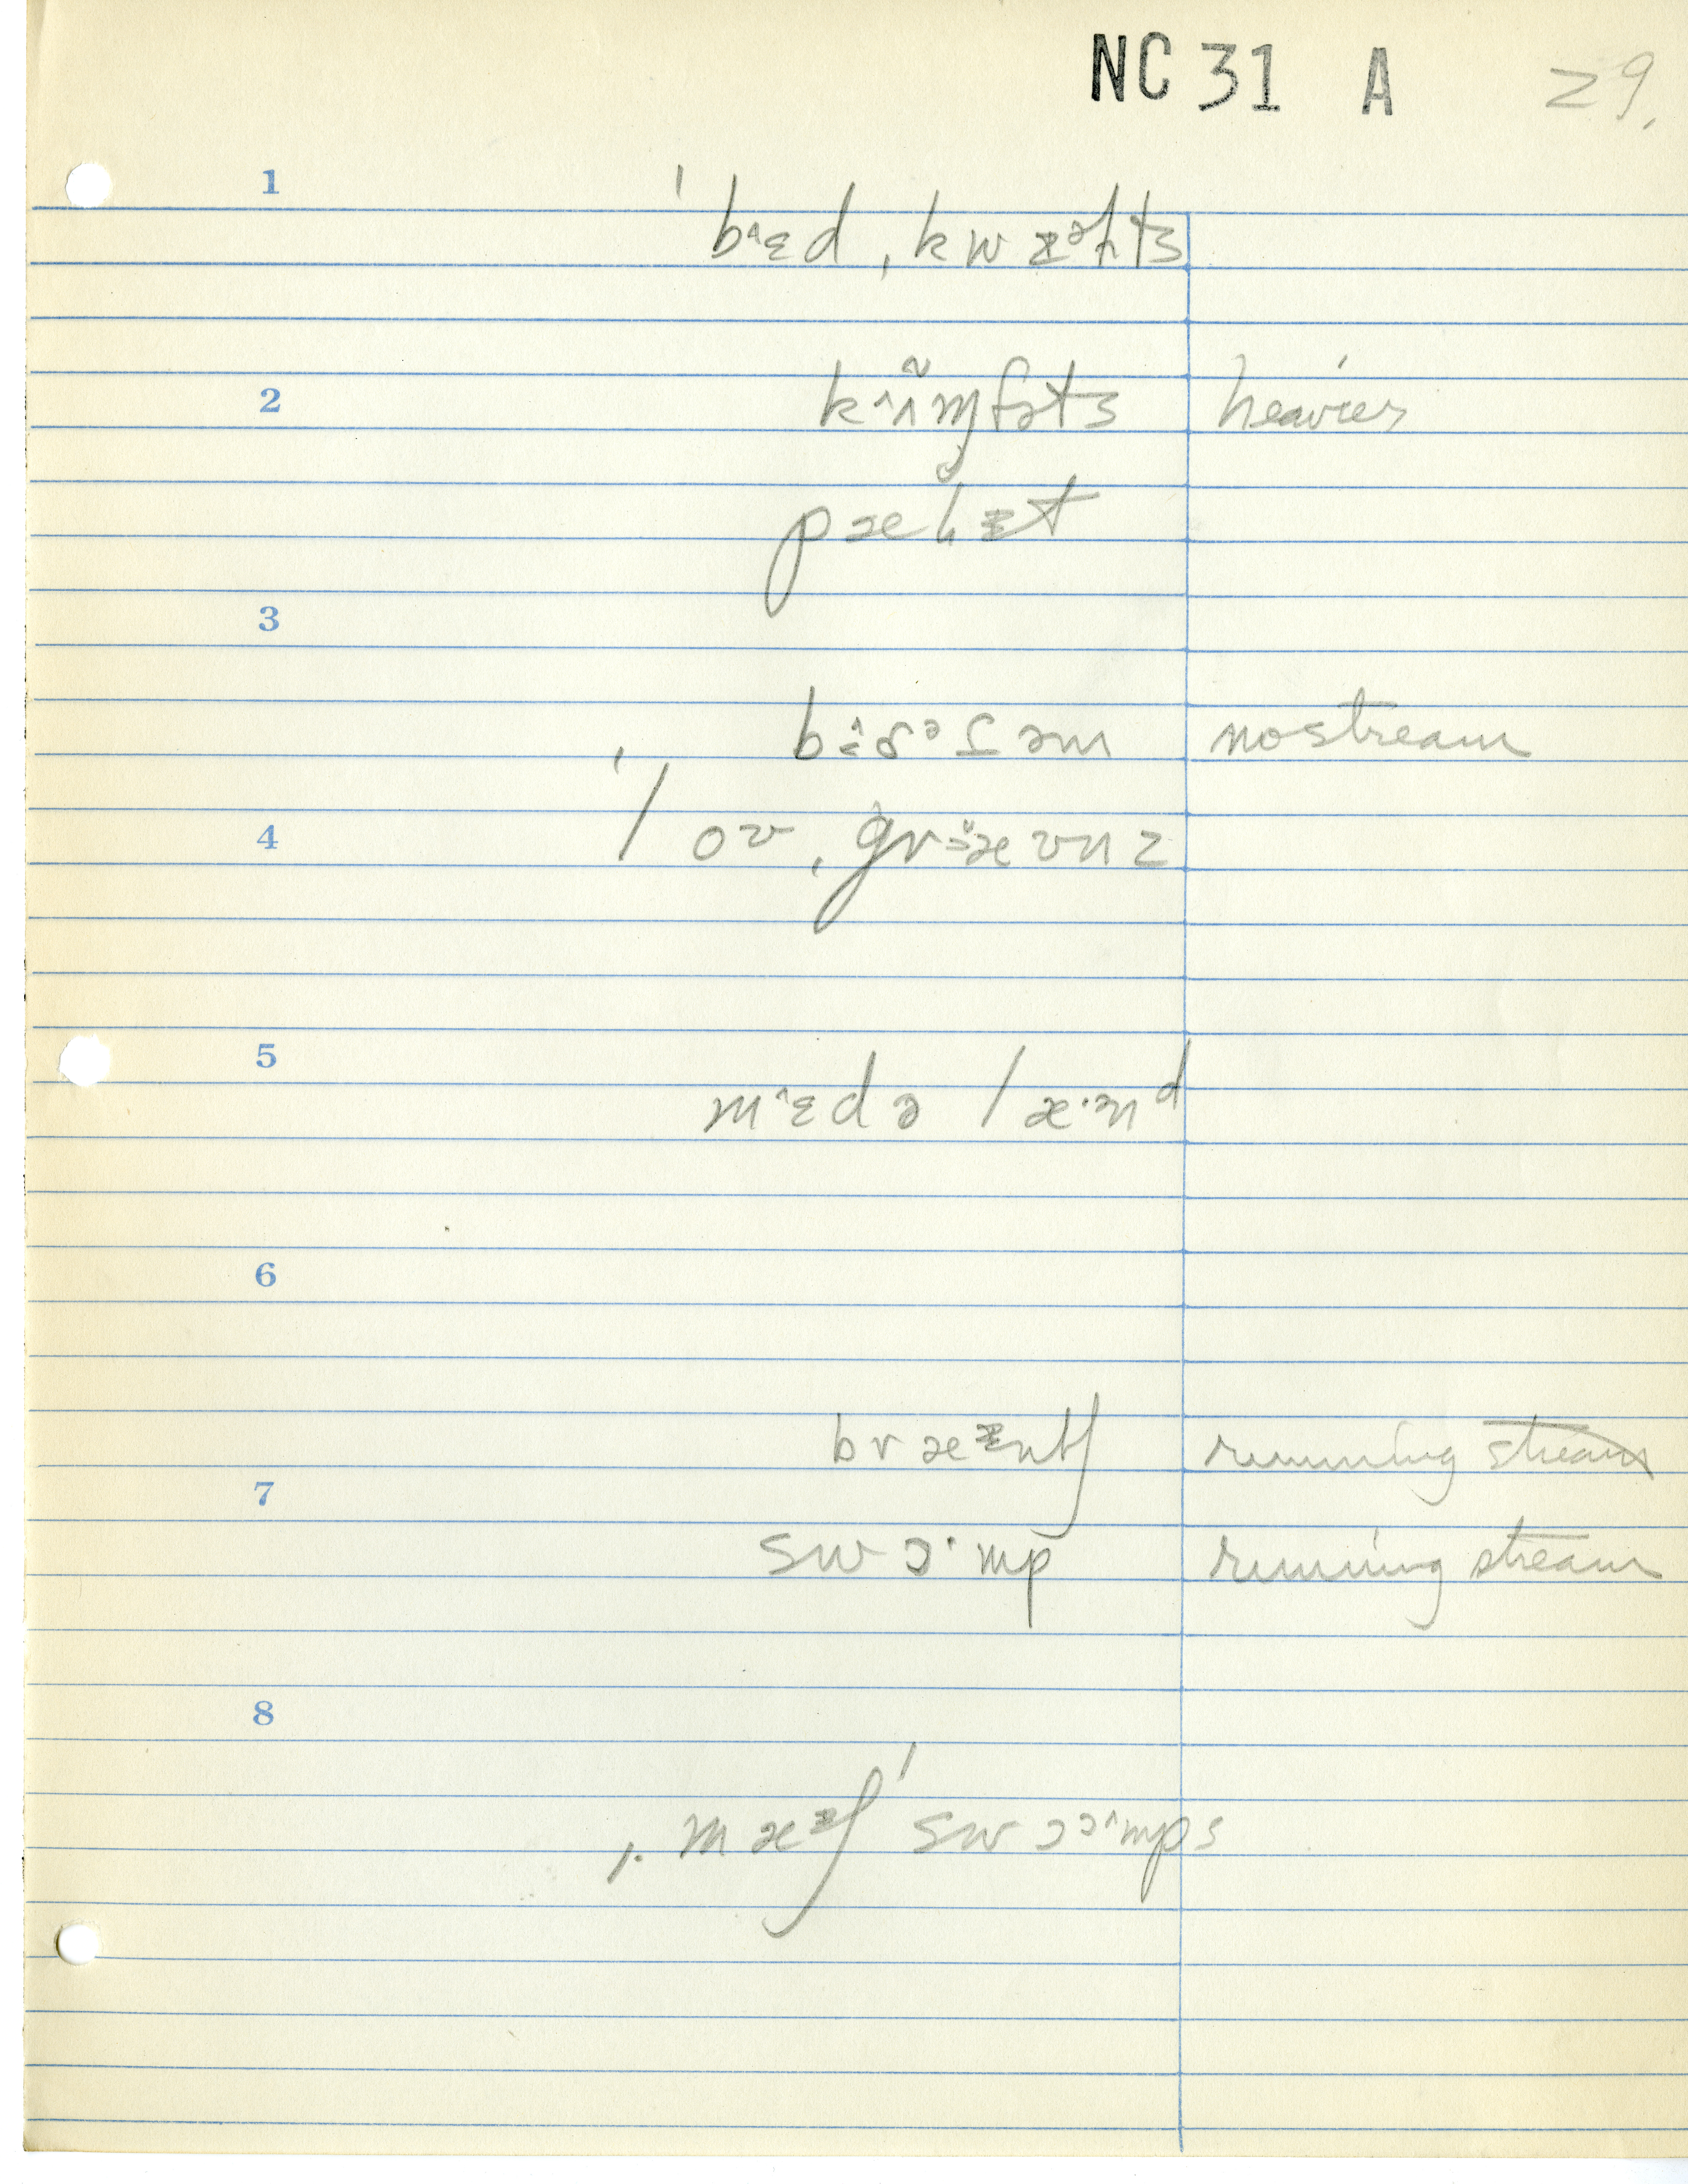 NC 31 A 29.
1
ˈbɪˆɛd ˌkwɪəɫts
2
kʌˆɪ̃ɱfəts heavier
pæɫɪt
3
bɪˆðəʃəm no stream
4
| ov ˌgrɜævnz
5
mɪˆɛdə læ·ənd
6
bræɪntʃ running stream
7
swɔ·mp running stream
8
ˌmæɪʃ ˈswɔɔˆmps